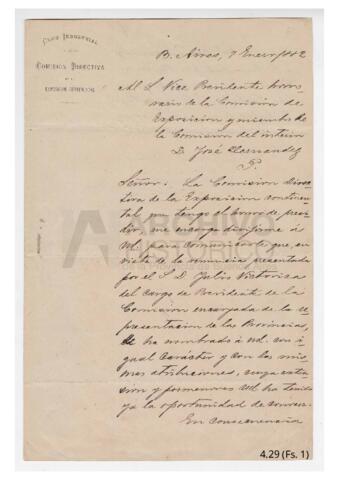 CLUB INDUSTRIAL
COMISION DIRECTIVA
DE LA
EXPOSICION CONTINENTAL
B. Aires, 7 Enero 1882
Al S. Vice Presidente hono-
rario de la Comision de
Exposicion y miembro de
la Comision del interior
D. José Hernandez
P.
Señor: La Comision Direc-
tora de la Exposicion continen-
tal que tengo el honor de presi-
dir, me encarga dirijirme á
Ud. para comunicarle que, en
vista de la renuncia presentada
por el S. D. Julio Victorica
del cargo de Presidente de la
Comision encargada de la re-
presentacion de las Provincias,
se ha nombrado á Ud. con i-
gual carácter y con las mis-
mas atribuciones, cuya esten-
sion y pormenores Ud. ha tenido
ya la oportunidad de conocer.
En consecuencia
ARCHIVO
4.29 (Fs. 1)